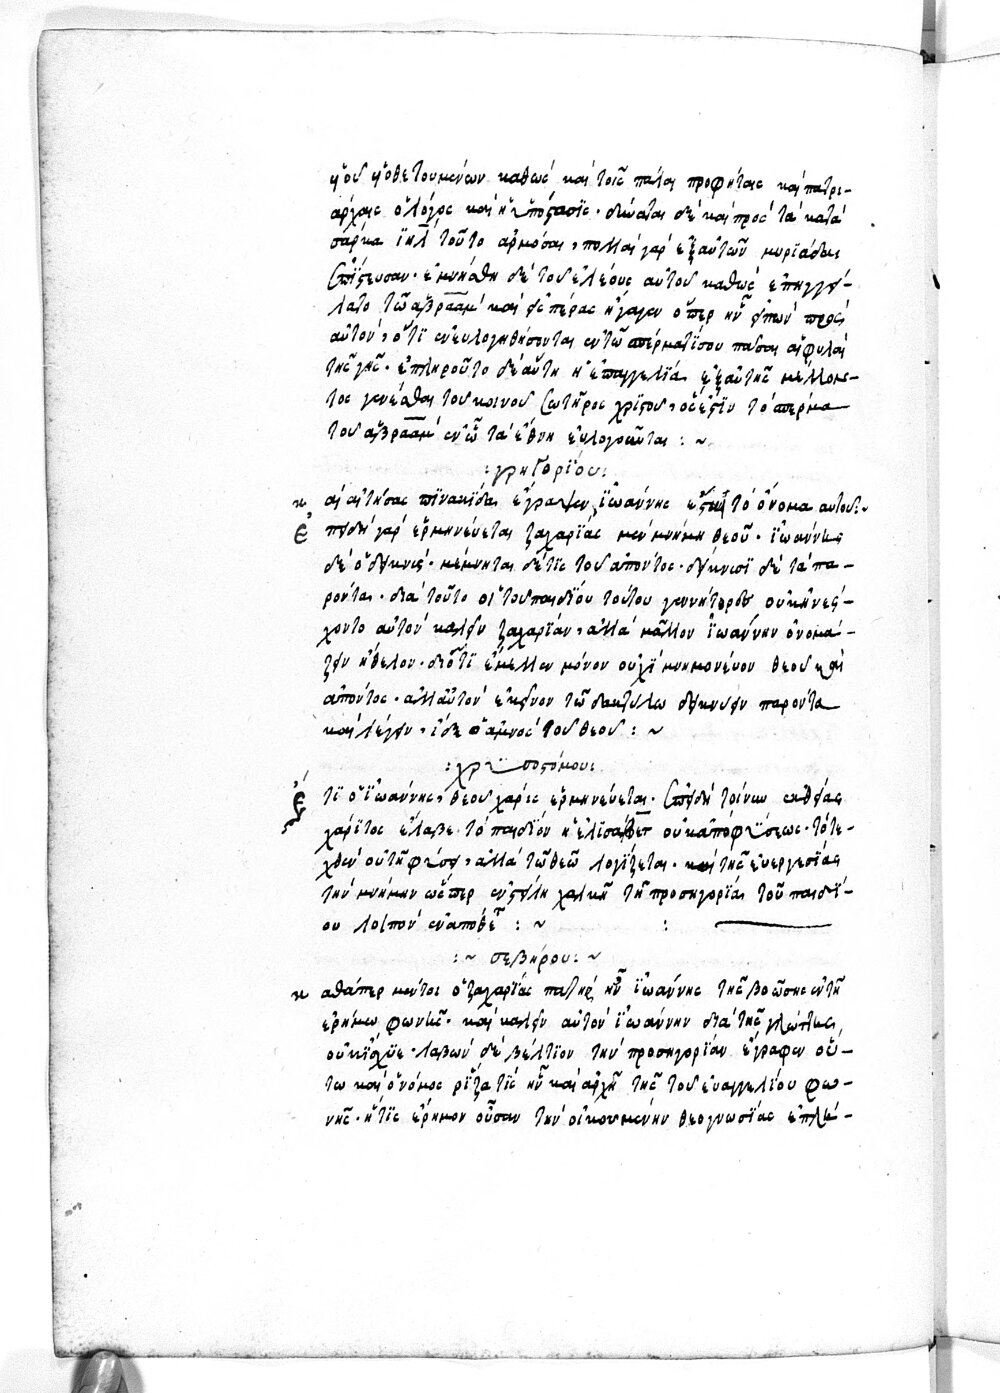 καθὼς καὶ τοῖς πάλαι προφήταις καὶ πατρι-
άρχαις ὁ λόγος καὶ ἡ ὑπόστασις· δύναται δὲ καὶ πρὸς τὰ κατὰ
σάρκα ἰηλ τοῦτο ἁρμόσαι, πολλαὶ γὰρ ἐξ αὐτῶν μυριάδες
ἐπίστευσαν· ἐμνήσθη δὲ τοῦ ἐλέους αὐτοῦ καθὼς ἐπηγγεί-
λατο τῶ ἀβραὰμ καὶ εἰς πέρας ἤγαγεν ὅπερ ἦν εἰπὼν πρὸς
αὐτὸν, ὅτι ἐνευλογηθήσονται ἐν τῶ σπέρματί σου πᾶσαι αἱ φυλαὶ
τῆς γῆς· ἐπληροῦτο δὲ αὕτη ἡ ἐπαγγελία ἐξ αὐτῆς μέλλον-
τος γενέσθαι τοῦ κοινοῦ σωτῆρος χριστοῦ, ὅς ἐστιν τὸ σπέρμα
τοῦ ἀβραὰμ ἐν ὧ τὰ ἔθνη εὐλογοῦνται : ~
: γρηγορίου :
κ αὶ αἰτήσας πινακίδα ἔγραψεν, ἰωάννης ἐστὶ τὸ ὄνομα αὐτοῦ : ~
ἐ πειδὴ γὰρ ἑρμηνεύεται ζαχαρίας μὲν μνήμη θεοῦ· ἰωάννης
δὲ ὁ δεικνύς· μέμνηται δέ τις τοῦ ἀπόντος· δείκνυσι δὲ τὰ πα-
ρόντα· διὰ τοῦτο οἱ τοῦ παιδίου τούτου γεννήτορες οὐκ ἠνέσ-
χοντο αὐτὸν καλεῖν ζαχαρίαν, ἀλλὰ μᾶλλον ἰωάννην ὀνομά-
ζειν ἤθελον· διότι ἔμελλεν μόνον οὐχὶ μνημονεύειν θεοῦ
ἀπόντος· ἀλλ αὐτὸν ἐκεῖνον τῶ δακτύλω δεικνύειν παρόντα
καὶ λέγειν, ἴδε ὁ ἀμνὸς τοῦ θεοῦ : ~
: χρυσοστόμου :
ἔ τι ὁ ἰωάννης, θεοῦ χάρις ἑρμηνεύεται· ἐπειδὴ τοίνυν ἐκ θείας
χάριτος ἔλαβε τὸ παιδίον ἡ ἐλισάβετ οὐκ ἀπὸ φύσεως· τὸ τε-
χθὲν οὐ τῆ φύσει, ἀλλὰ τῶ θεῶ λογίζεται· καὶ τῆς εὐεργεσίας
τὴν μνήμην ὥσπερ ἐν στήλη χαλκῆ τῆ προσηγορία τοῦ παιδί-
ου λοιπὸν ἐναποθεῖ : ~ :
: ~ σεβήρου : ~
κ αθάπερ μέντοι ὁ ζαχαρίας πατὴρ ἦν ἰωάννης τῆς βοώσης ἐν τῆ
ἐρήμω φωνῆς· καὶ καλεῖν αὐτὸν ἰωάννην διὰ τῆς γλώττης
οὐκ ἴσχυε· λαβὼν δὲ δέλτιον τὴν προσηγορίαν ἔγραφεν οὕ-
τω καὶ ὁ νόμος ῥίζα τίς ἦν καὶ ἀρχὴ τῆς τοῦ εὐαγγελίου φω-
νῆς· ἥτις ἔρημον οὖσαν τὴν οἰκουμένην θεογνωσίας ἐπλή-